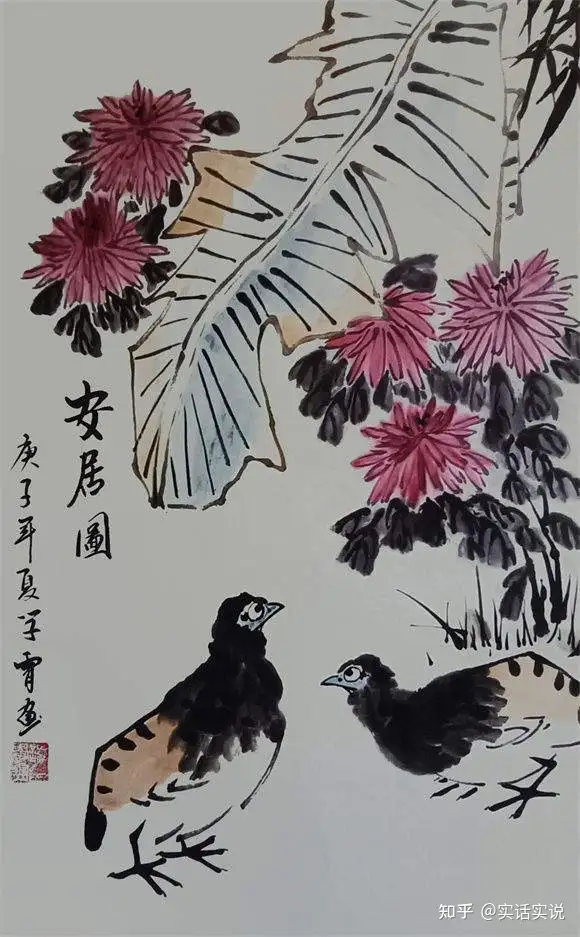 安居圖
庚子年夏学霄画
知乎 @实话实说